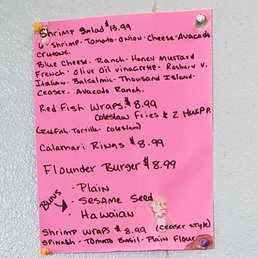 Shrimp Salad $13.99
6-shrimp-Tomato-onion-Cheese-Avacado
Crutons.
Blue Cheese - Ranch - Honey Mustard
French - Olive Oil vinagrette - Rasberry v
Italian - Balsalmic - Thousand Island -
Ceaser - Avacado Ranch.
Red Fish Wraps $8.99
Coleslaw Fries & 2 HusPP.
(Redfish-Torrilla-Coleslaw)
Calamari Rings $8.99
Flounder Burger $8.99
Buns
- Plain
- Sesame Seed
- Hawaiian
Shrimp Wraps $8.99 (Ceaser style)
Spinash - Tomato Basil - Plain Flour